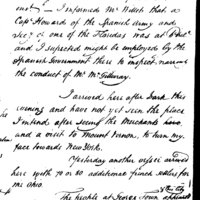 I informed Mr that a
Capt Howard of the Spanish Army and
Secy of one of the Floridas was at
and I suspected might be employed by the
Spanish Government there to inspect
the conduct of Mr McGillivray.
I arrived here after dark this
evening and have not yet seen the place
I intend after seeing the Merchants here
and a visit to Mount Vernon, to turn my
face towards New York.
Yesterday another vessel arrived
here with 70 or 80 additional french settlers for
the Ohio.
The people at George Town